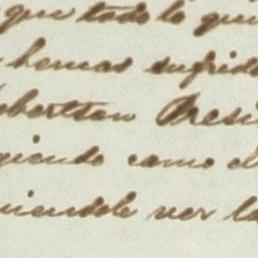 que todo lo que
hemos sufrido
obertson Presi
giendo como el
iendole ver la